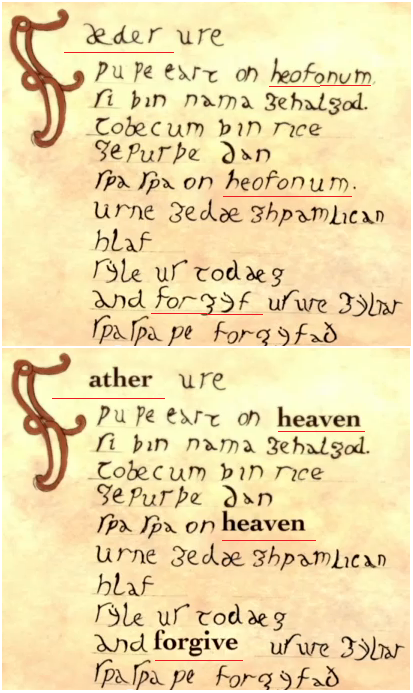 Fæder ure
þu þe eart on heofonum.
si þin nama gehalgod.
tobecum þin rice
geƿurþe ðan
sƿa sƿa on heofonum.
urne gedæ ghƿamlican
hlaf
syle us todaeg
and forgyf us ure gyltas
sƿa sƿa ƿe forgyfað
Father ure
þu þe eart on heaven
si þin nama gehalgod.
tobecum þin rice
geƿurþe ðan
sƿa sƿa on heaven
urne gedæ ghƿamlican
hlaf
syle us todaeg
and forgive us ure gyltas
sƿa sƿa ƿe forgyfað